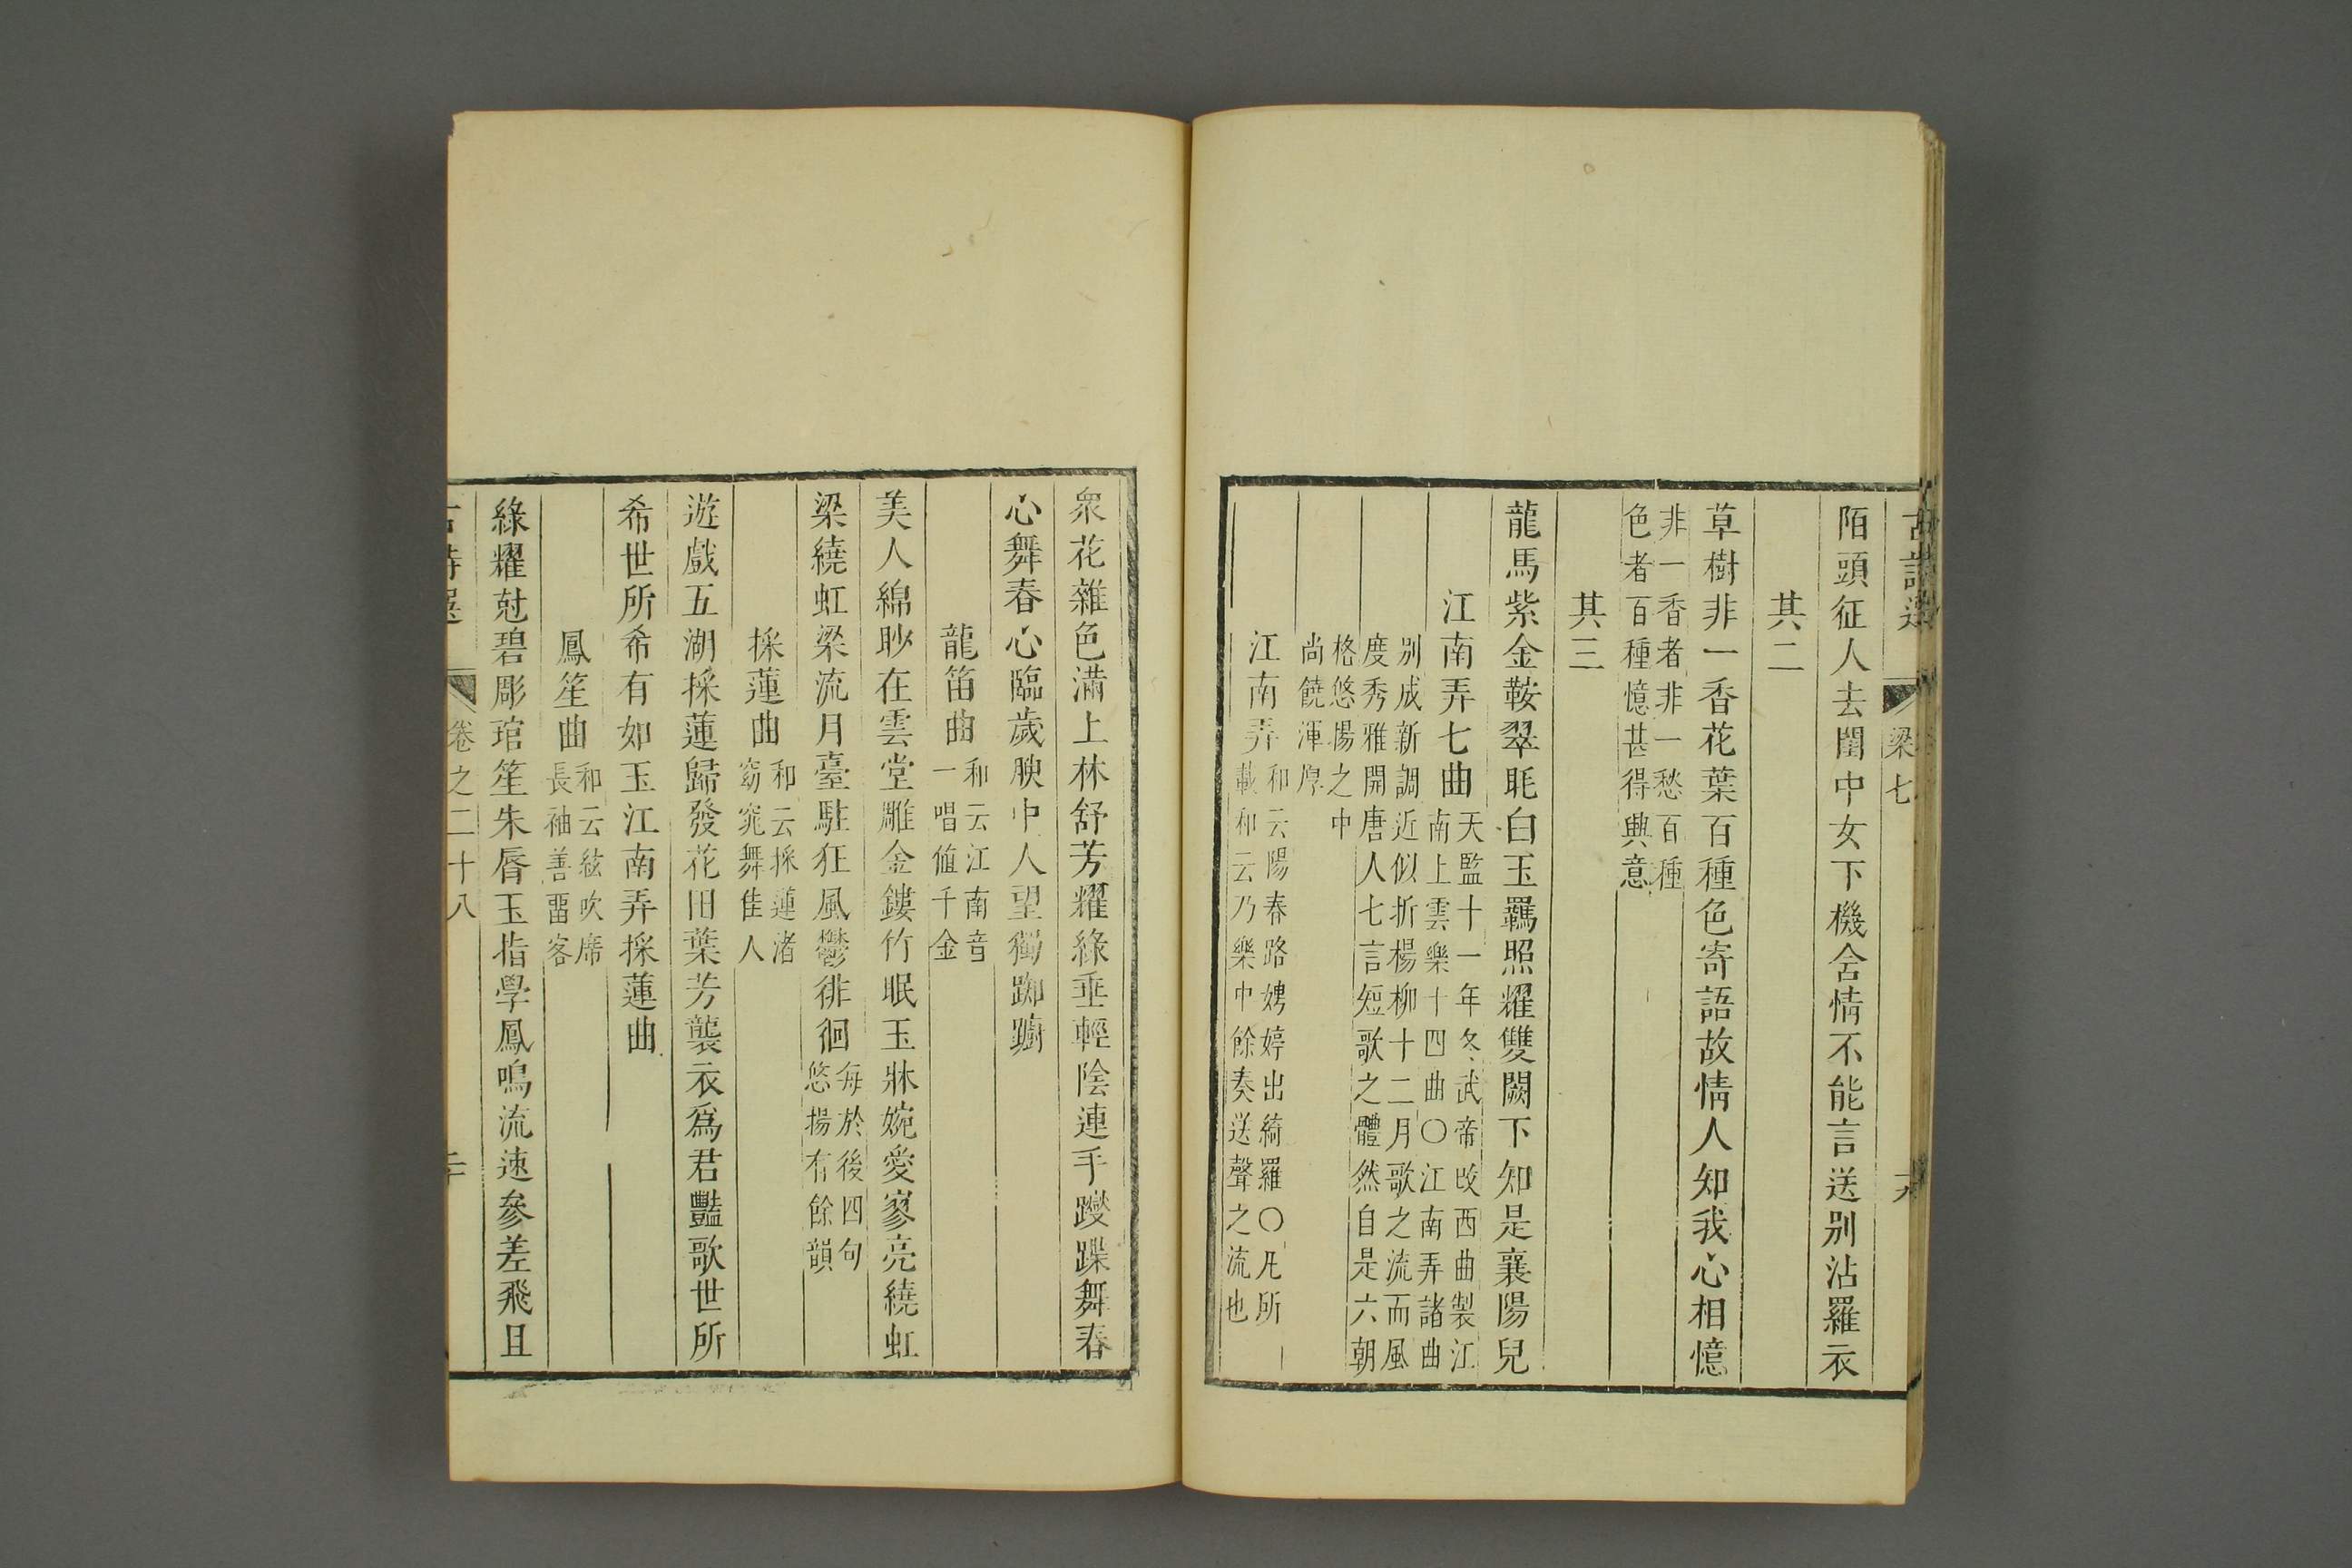 梁七
陌頭征人去閨中女下機含情不能言送别沾羅衣
其二
草樹非一香花葉百種色寄語故情人知我心相憶
非一香者非一愁百種
色者百種憶甚得興意
其三
龍馬紫金鞍翠眊白玉羈照耀雙闕下知是襄陽兒
江南弄七曲
天監十一年冬武帝改西曲製江
南上雲樂十四曲〇江南弄諸曲
别成新調近似折楊柳十二月歌之流而風
度秀雅開唐人七言短歌之體然自是六朝
格悠陽之中
尚饒渾厚
江南弄
和云陽春路娉婷出綺羅〇凡所
載和云乃樂中餘奏送聲之流也
衆花雜色滿上林舒芳耀綠垂輕陰連手躞蹀舞春
心舞春心臨歲腴中人望獨踟躕
龍笛曲
和云江南音
一唱值千金
美人綿眇在雲堂雕金鏤竹眠玉牀婉愛寥亮繞虹
梁繞虹梁流月臺駐狂風鬱徘徊
每於後四句
悠揚有餘韻
採蓮曲
和云採蓮渚
窈窕舞佳人
遊戲五湖採蓮歸發花田葉芳襲衣爲君豔歌世所
希世所希有如玉江南弄採蓮曲
鳳笙曲
和云絃吹席
長袖善畱客
綠耀尅碧彫琯笙朱脣玉指學鳳鳴流速參差飛且
卷之二十八